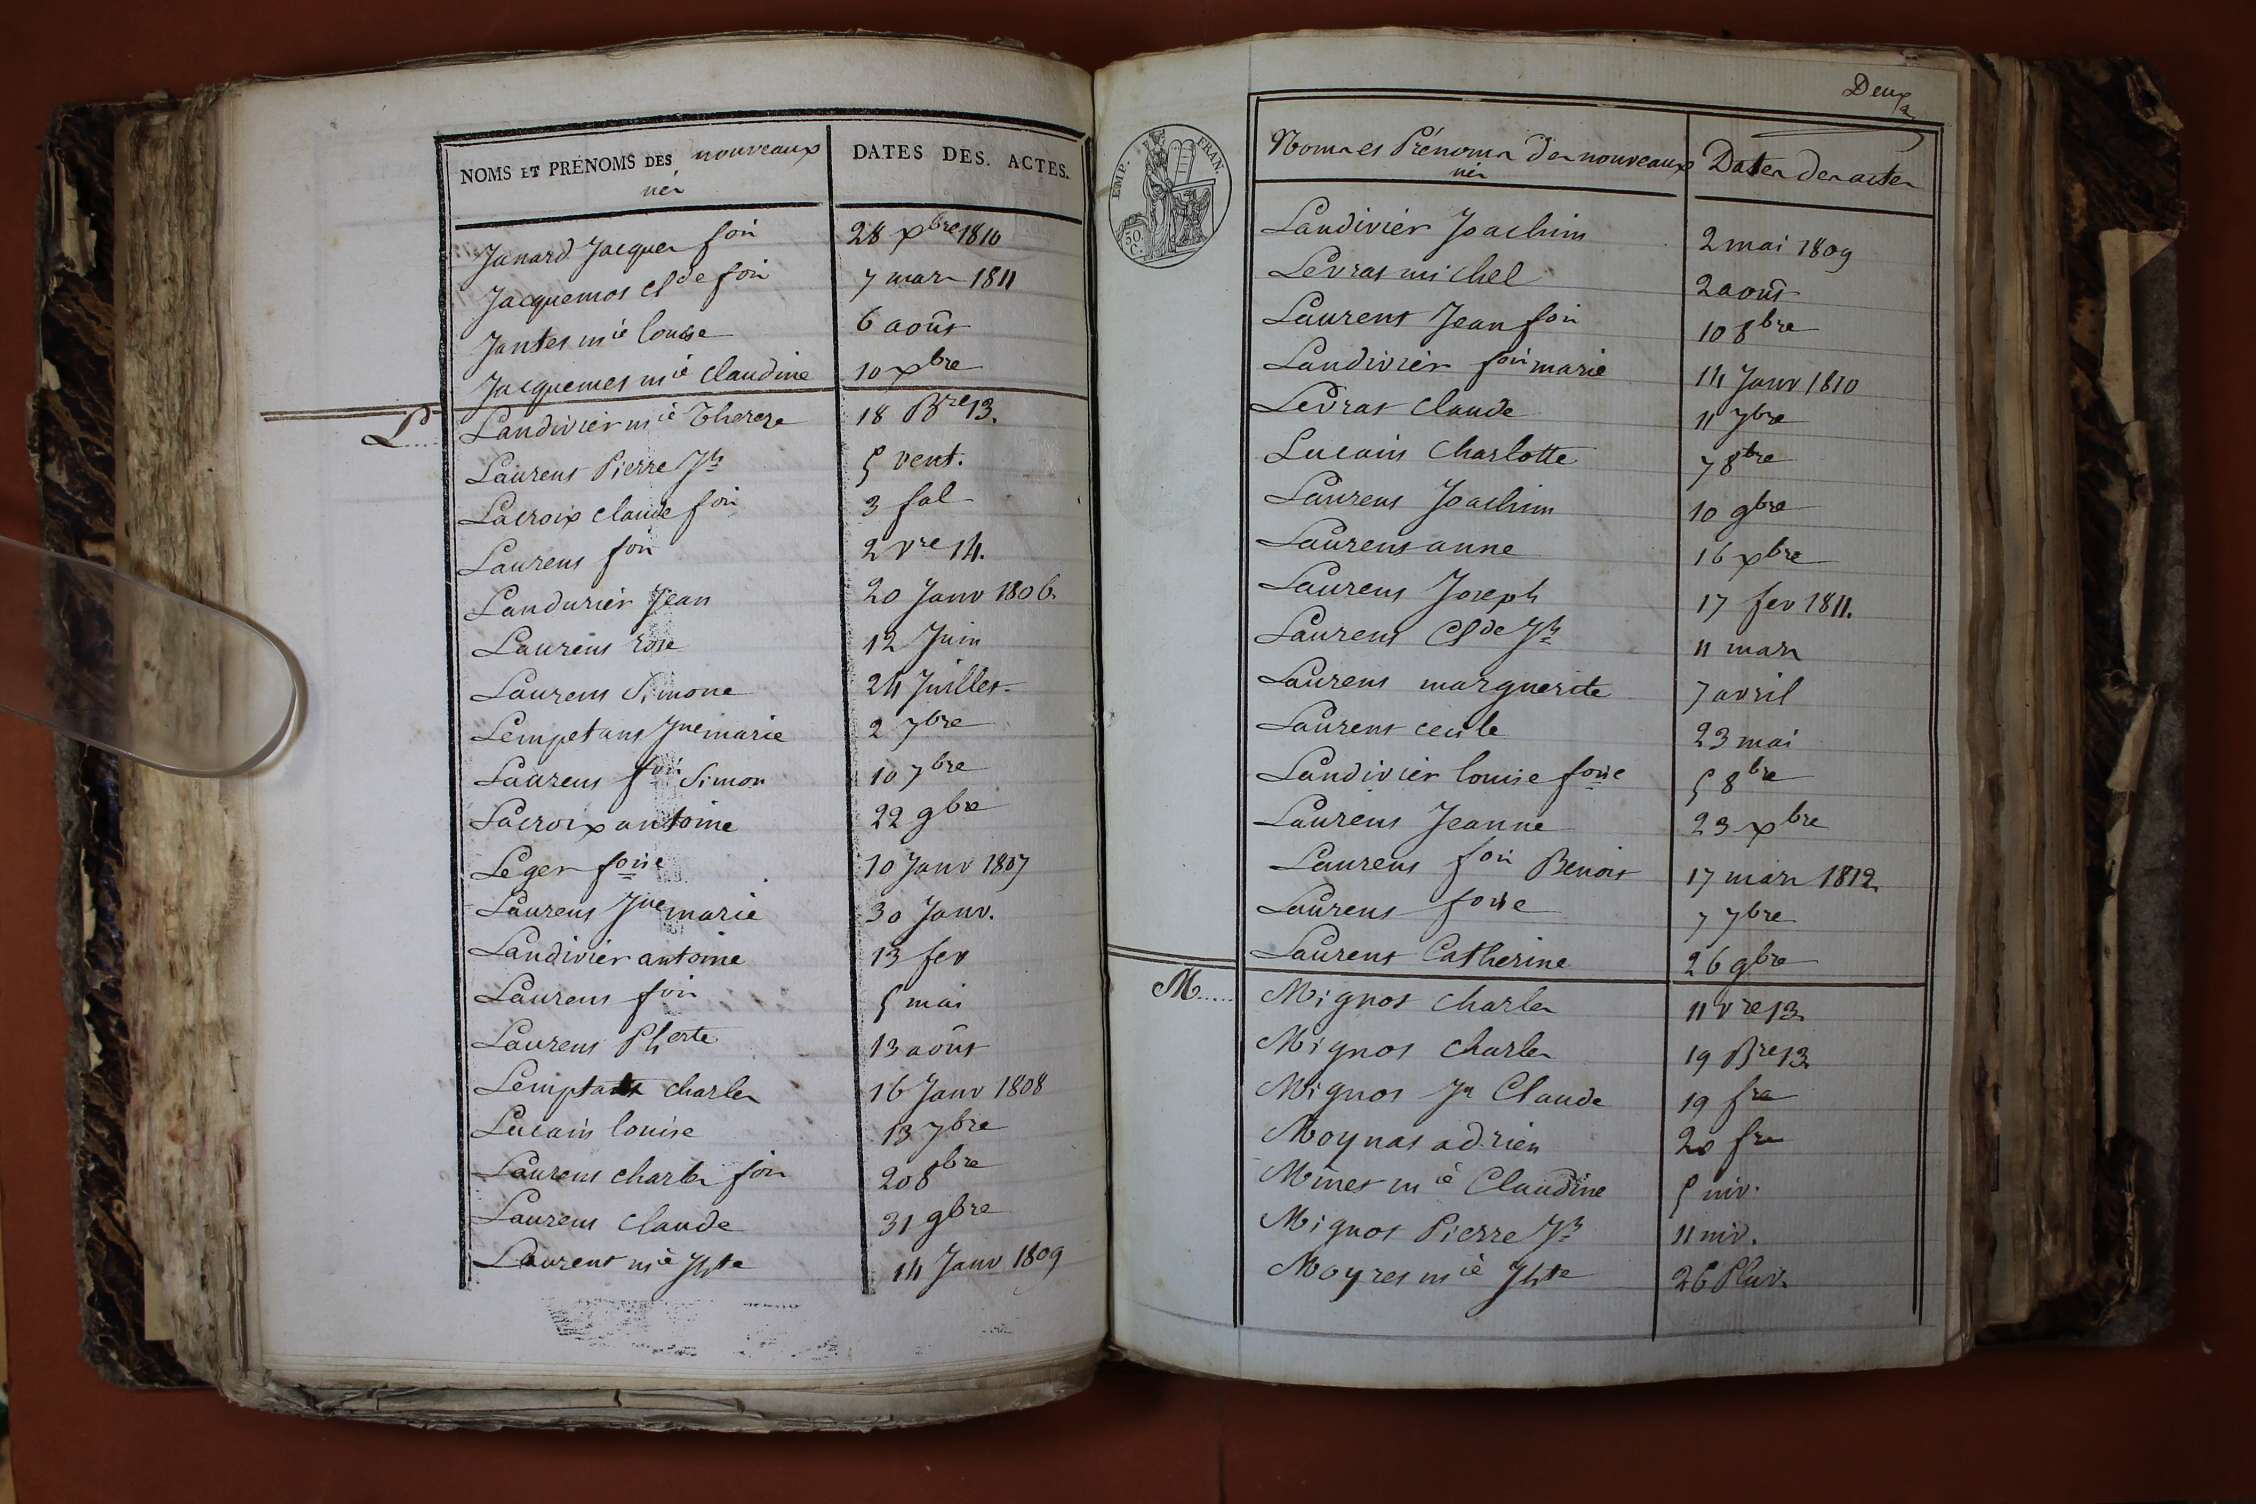 NOMS ET PRÉNOMS DES nouveaux DATES DES ACTES.
nés
Janard Jacques fois 28 xbre 1810
Jacquemos clde fois 7 mars 1811
Jantes mie louise 6 août
Jacquemes mie Claudine 10 xbre
L.... Landivier mie Therese 18 Bre 13.
Laurens Pierre Jh 5 vent.
Lacroix claude fois 3 fal
Laurens fois 2 vre 14.
Landurier Jean 20 Janv 1806.
Laurens rose 12 Juin
Laurens Simone 24 Juillet
Lempetans Jne marie 2 7bre
Laurens fois Simon 10 7bre
Lacroix antoine 22 9bre
Leger foise 10 Janv 1807
Laurens Jne marie 30 Janv.
Landivier antoine 13 fev
Laurens fois 5 mai
Laurens Pherte 13 août
Charles 16 Janv 1808
Lucain louise 13 7bre
Laurens charles fois 20 8bre
Laurens claude 31 9bre
Laurent mie Jhte 14 Janv 1809
Deux
EMP. FRAN.
50 C.
Noms et Prénoms des nouveaux Dates des actes
nés
Landivier Joachim 2 mai 1809
Levrat michel 2 août
Laurent Jean fois 10 8bre
Landivier fois marie 14 Janv 1810
Levrat claude 11 7bre
Lucain Charlotte 7 8bre
Laurens Joachim 10 9bre
Laurens anne 16 xbre
Laurens Joseph 17 fev 1811.
Laurens Clde Jh 11 mars
Laurens marguerite 7 avril
Laurent cecile 23 mai
Landivier louise foise 5 8bre
Laurens Jeanne 23 xbre
Laurens fois Benoit 17 mars 1812
Laurens foise 7 7bre
Laurent Catherine 26 9bre
M.... Mignot charles 11 vre 13
Mignot charles 19 Bre 13
Mignot Jn Claude 19 fre
Moynat adrien 20 fre
Minet mie Claudine 5 niv.
Mignot Pierre Jh 11 niv.
Moyret mie Jhte 26 Pluv.